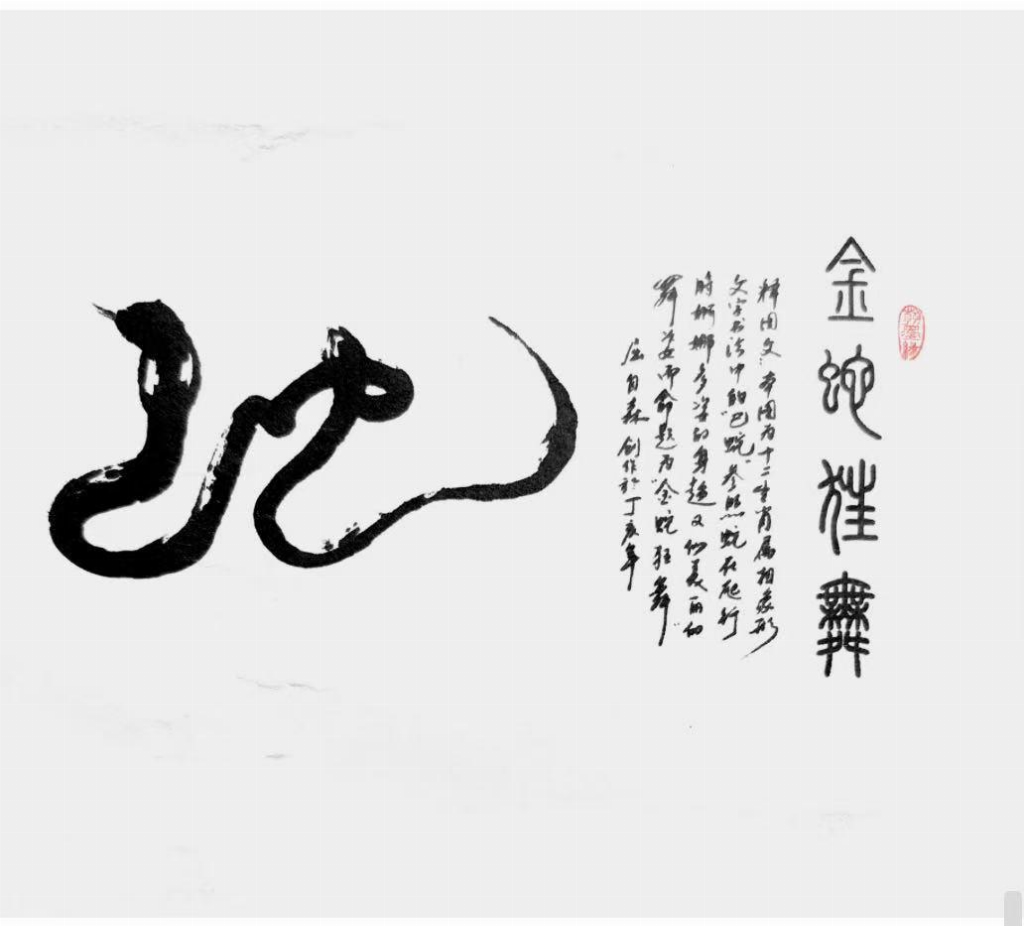 金蛇狂舞
释图文:本图为十二生肖属相象形
文字书法中的"巴蛇"参照蛇在爬行
時婀娜多姿的身趋又似美丽的
舞姿而命题为"金蛇狂舞"
屈自森創作於丁亥年